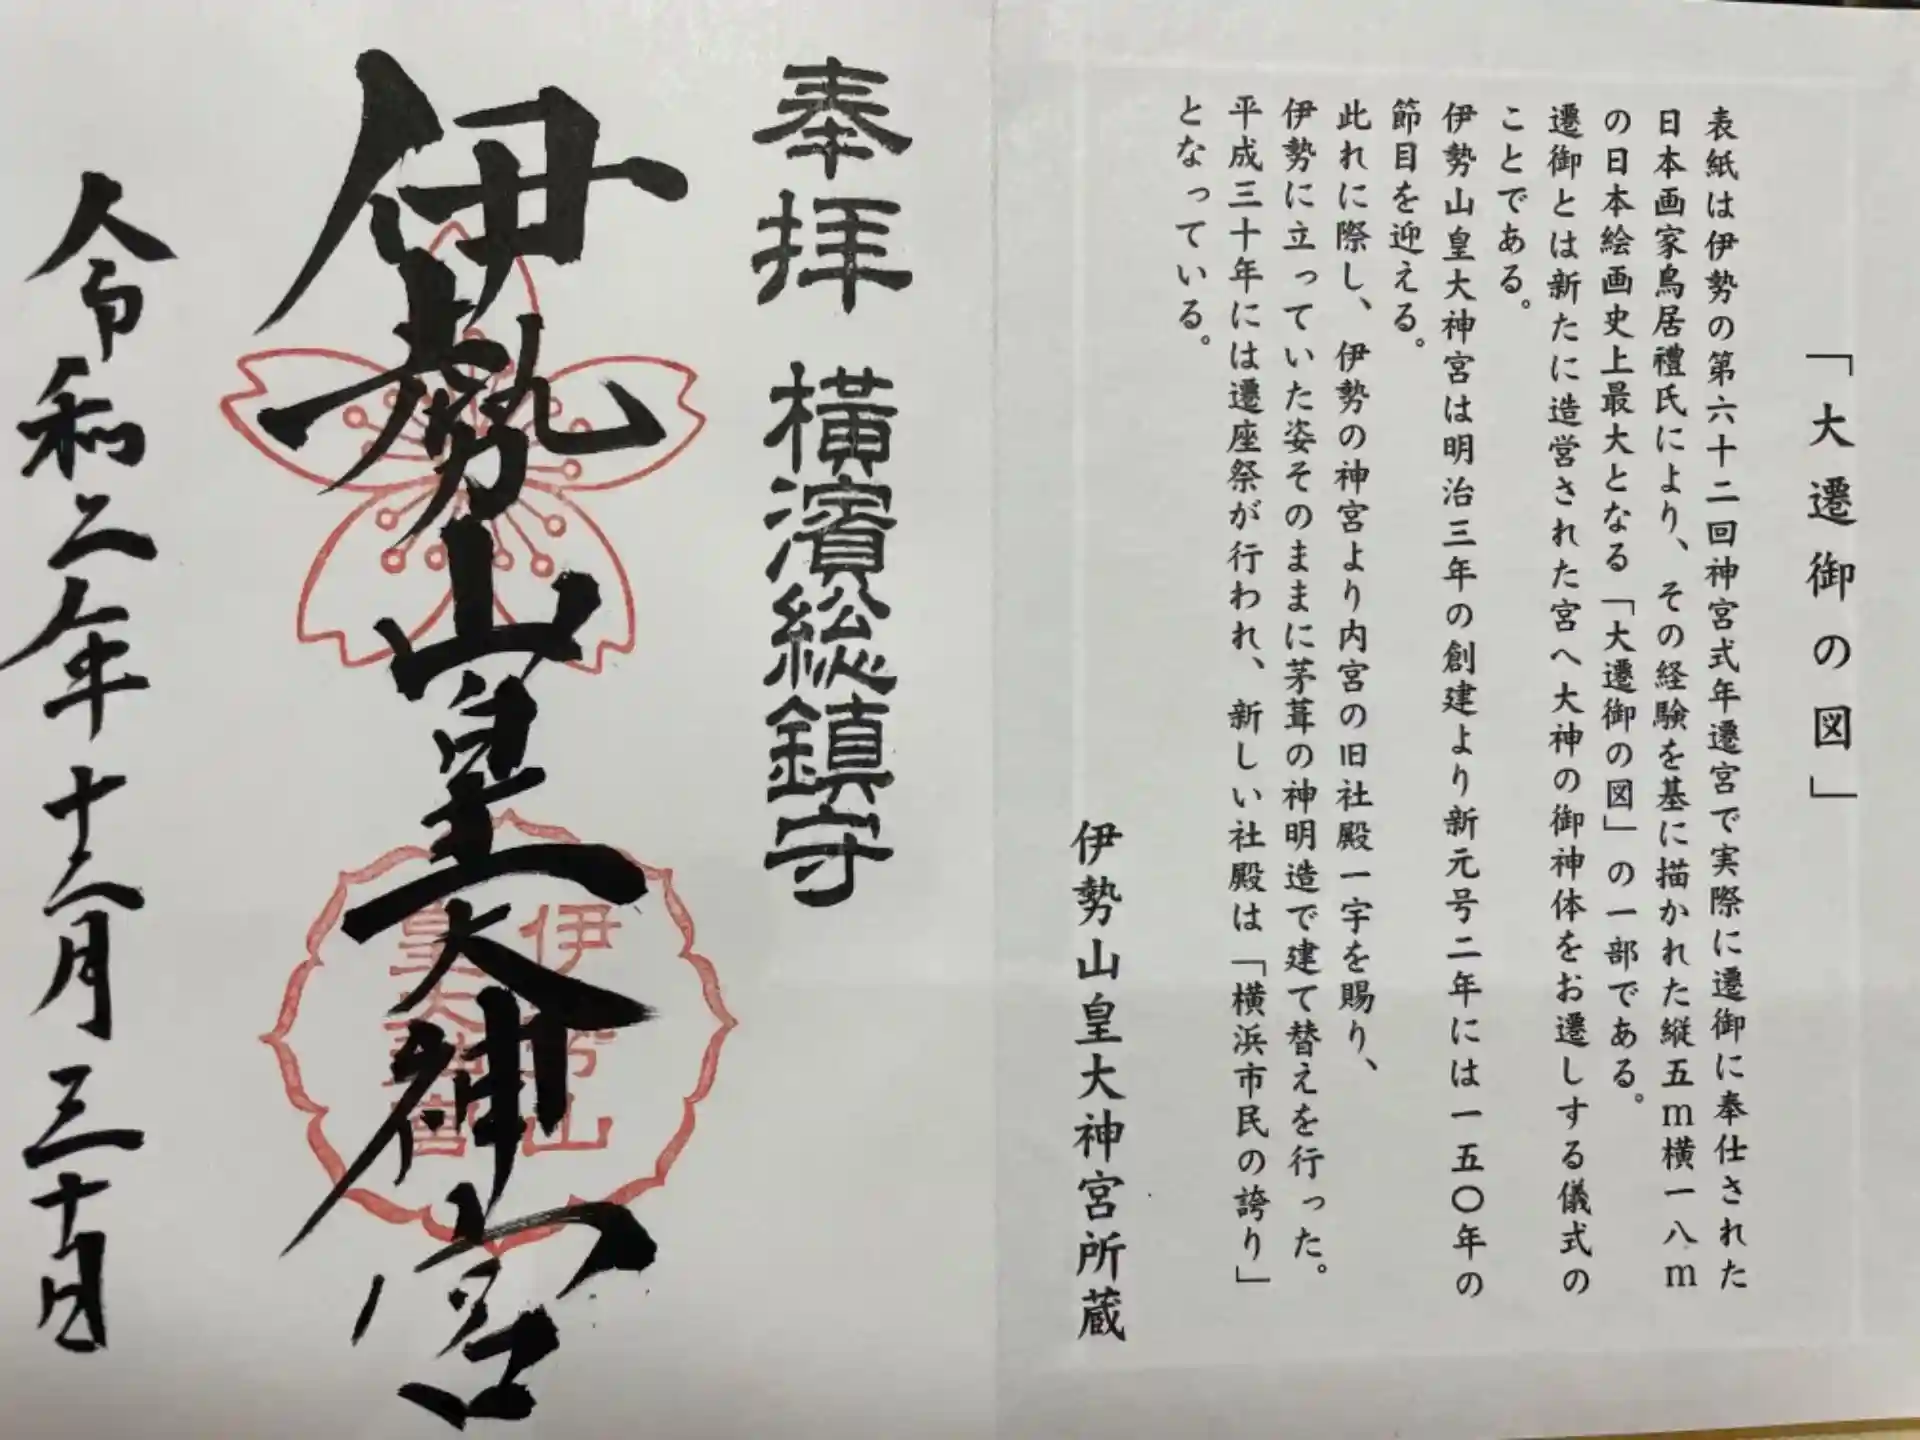 「大遷御の図」
表紙は伊勢の第六十二回神宮式年遷宮で実際に遷御に奉仕された
日本画家鳥居禮氏により、その経験を基に描かれた縦五ｍ横一八ｍ
の日本絵画史上最大となる「大遷御の図」の一部である。
遷御とは新たに造営された宮へ大神の御神体をお遷しする儀式の
ことである。
伊勢山皇大神宮は明治三年の創建より新元号二年には一五〇年の
節目を迎える。
此れに際し、伊勢の神宮より内宮の旧社殿一宇を賜り、
伊勢に立っていた姿そのままに茅葺の神明造で建て替えを行った。
平成三十年には遷座祭が行われ、新しい社殿は「横浜市民の誇り」
となっている。
伊勢山皇大神宮所蔵
奉拝 横濱総鎮守
伊勢山皇大神宮
伊勢山
皇大神宮
令和二年十二月三十日